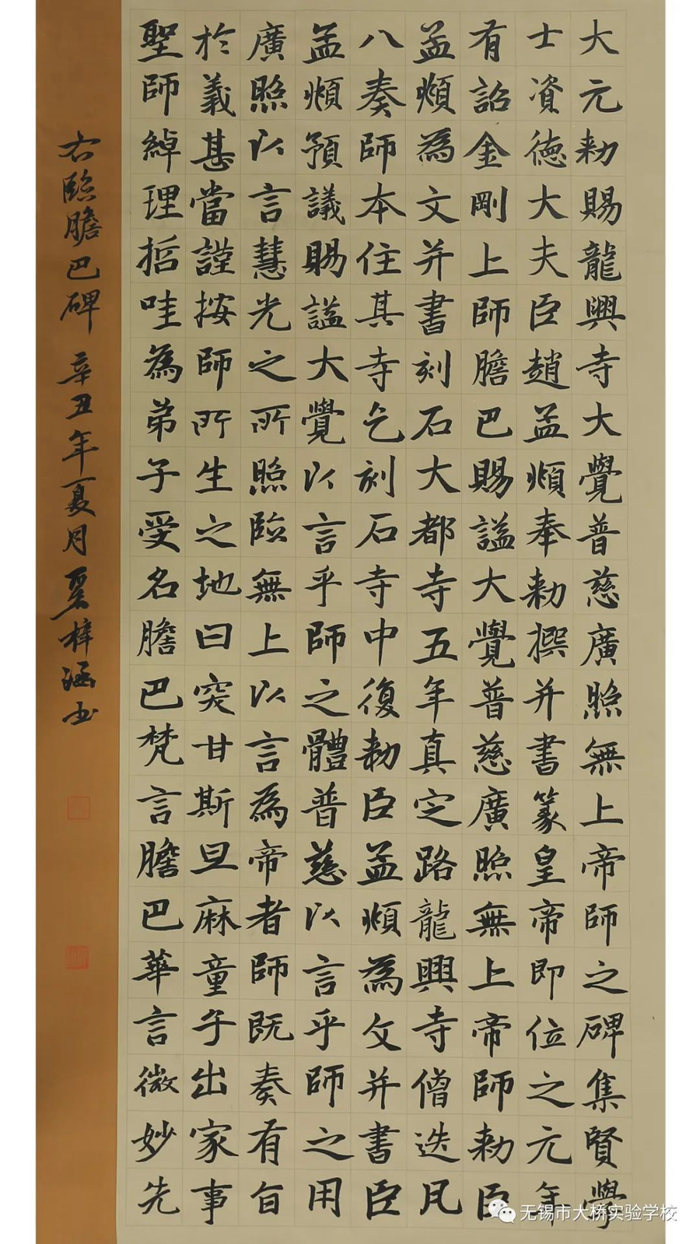 大元勑賜龍興寺大覺普慈廣照無上帝師之碑集賢學
士資德大夫臣趙孟頫奉勑撰并書篆皇帝即位之元年
有詔金剛上師膽巴賜謚大覺普慈廣照無上帝師勑臣
孟頫為文并書刻石大都寺五年真定路龍興寺僧迭凡
八奏師本住其寺乞刻石寺中復勑臣孟頫為文并書臣
孟頫預議賜謚大覺以言乎師之體普慈以言乎師之用
廣照以言慧光之所照臨無上以言為帝者師既奏有旨
於義甚當謹按師所生之地曰突甘斯旦麻童子出家事
聖師綽理哲哇為弟子受名膽巴梵言膽巴華言微妙先
右臨膽巴碑 辛丑年夏月 梓涵书
无锡市大桥实验学校